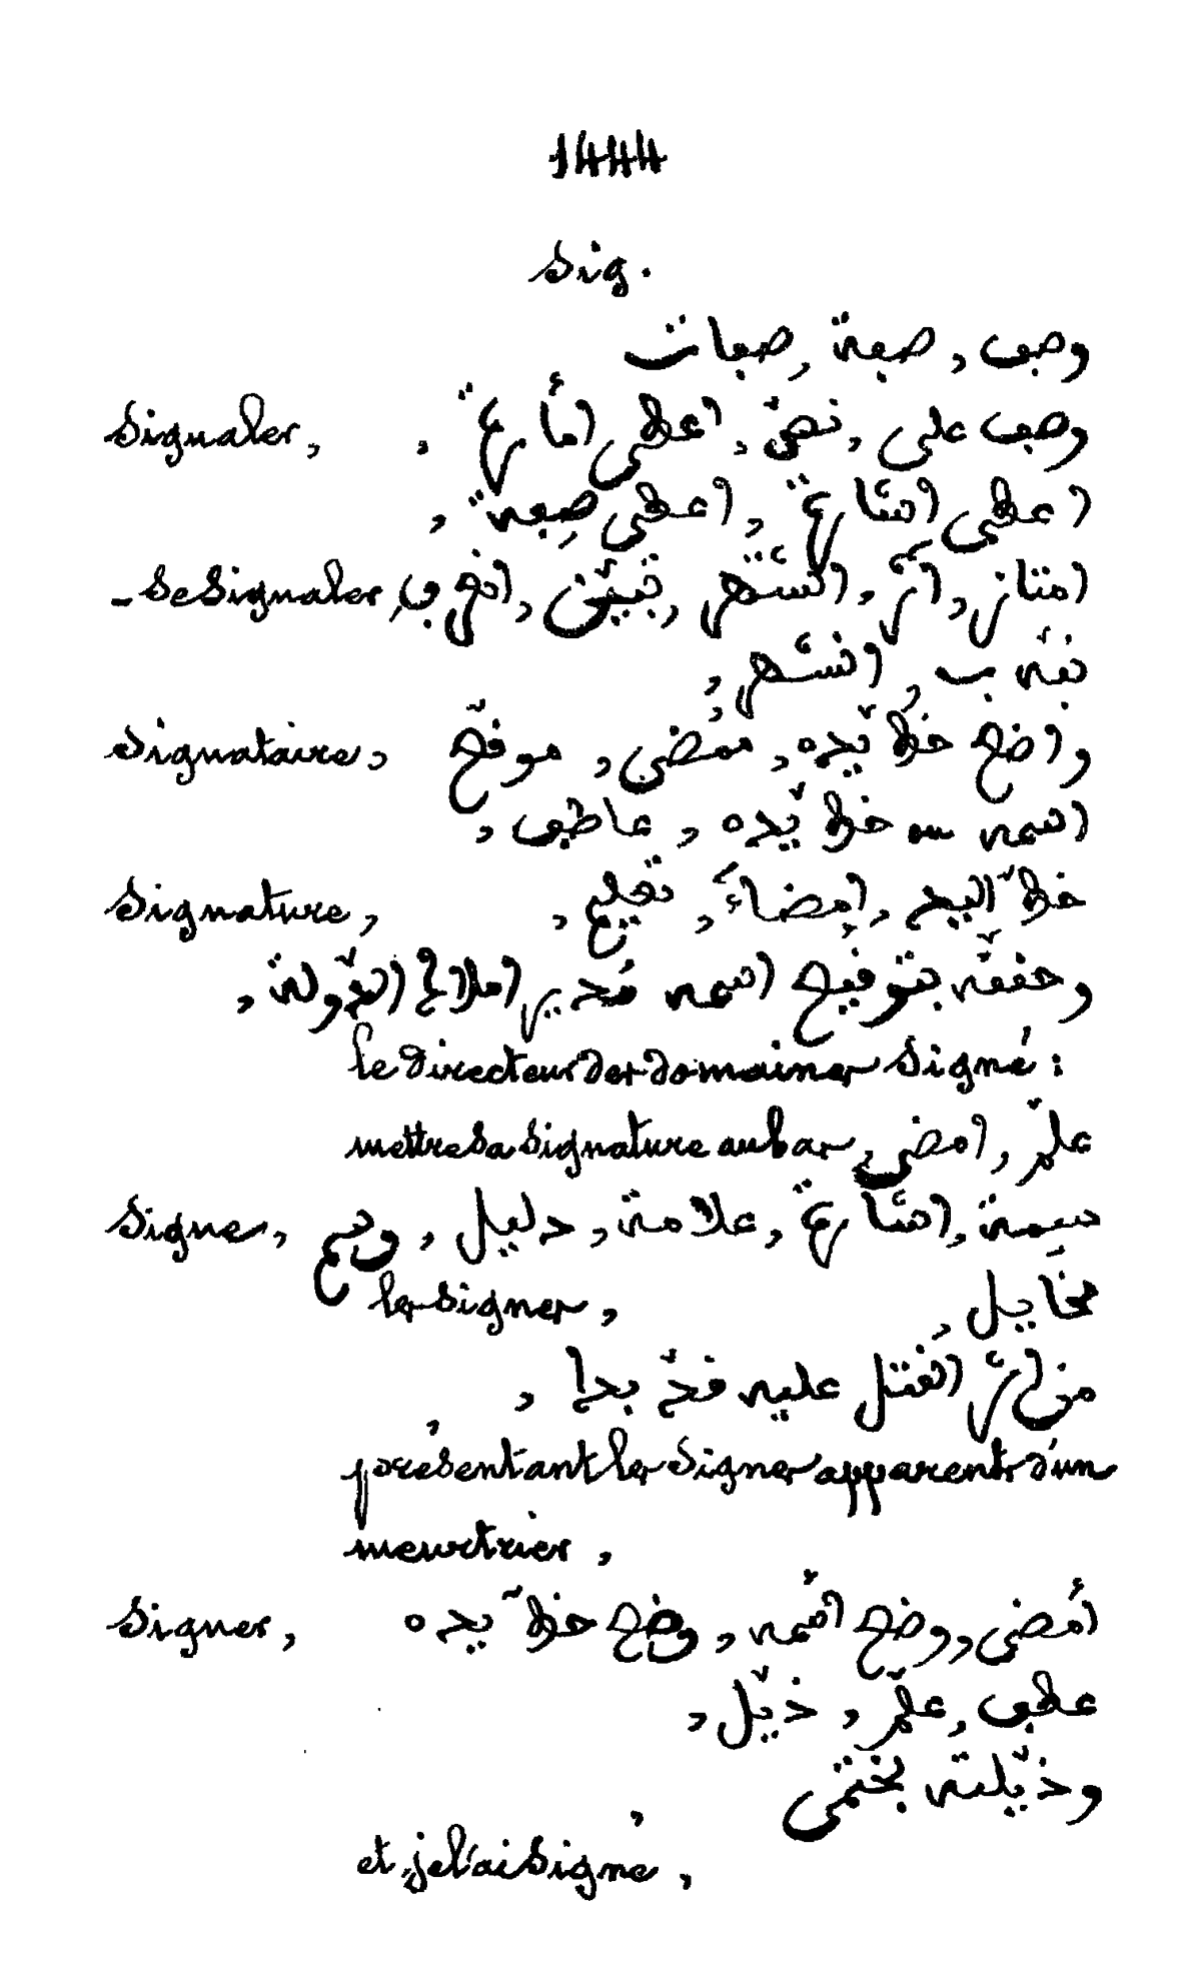 1444
Sig.
وصف , صفة , صفات
Signaler, وصف على , نصّ , اعطى أمارةً ,
اعطى اشارةً , اعطى صِفةً ,
- se Signaler, امتاز , أثّر , اشتهر , تبيّن , انعرف
نفسه ب , اشتهر ,
Signataire, واضع خطّ يده , مُمْضي , موقّع
اسمه خطّ يده , عاطف ,
Signature, خطّ اليد , إمضاءً ,
وحققه بتوقيع اسمه مُدير املاك الدّولة ,
le Directeur des domaines Signé :
mettre Sa Signature au bas, علّم , امضى
Signe, سِمة , اشارة , علامة , دليل , وسم
les Signes, مخايل
من اثر القتل عليه قد بدا ,
présentant les Signes apparents d'un
meurtrier,
Signer, أمضى , ووضع اسمه , وضع خطّ يده
عطف , علّم , ذيّل ,
وذيّلته بختمي
et je l'ai Signé,